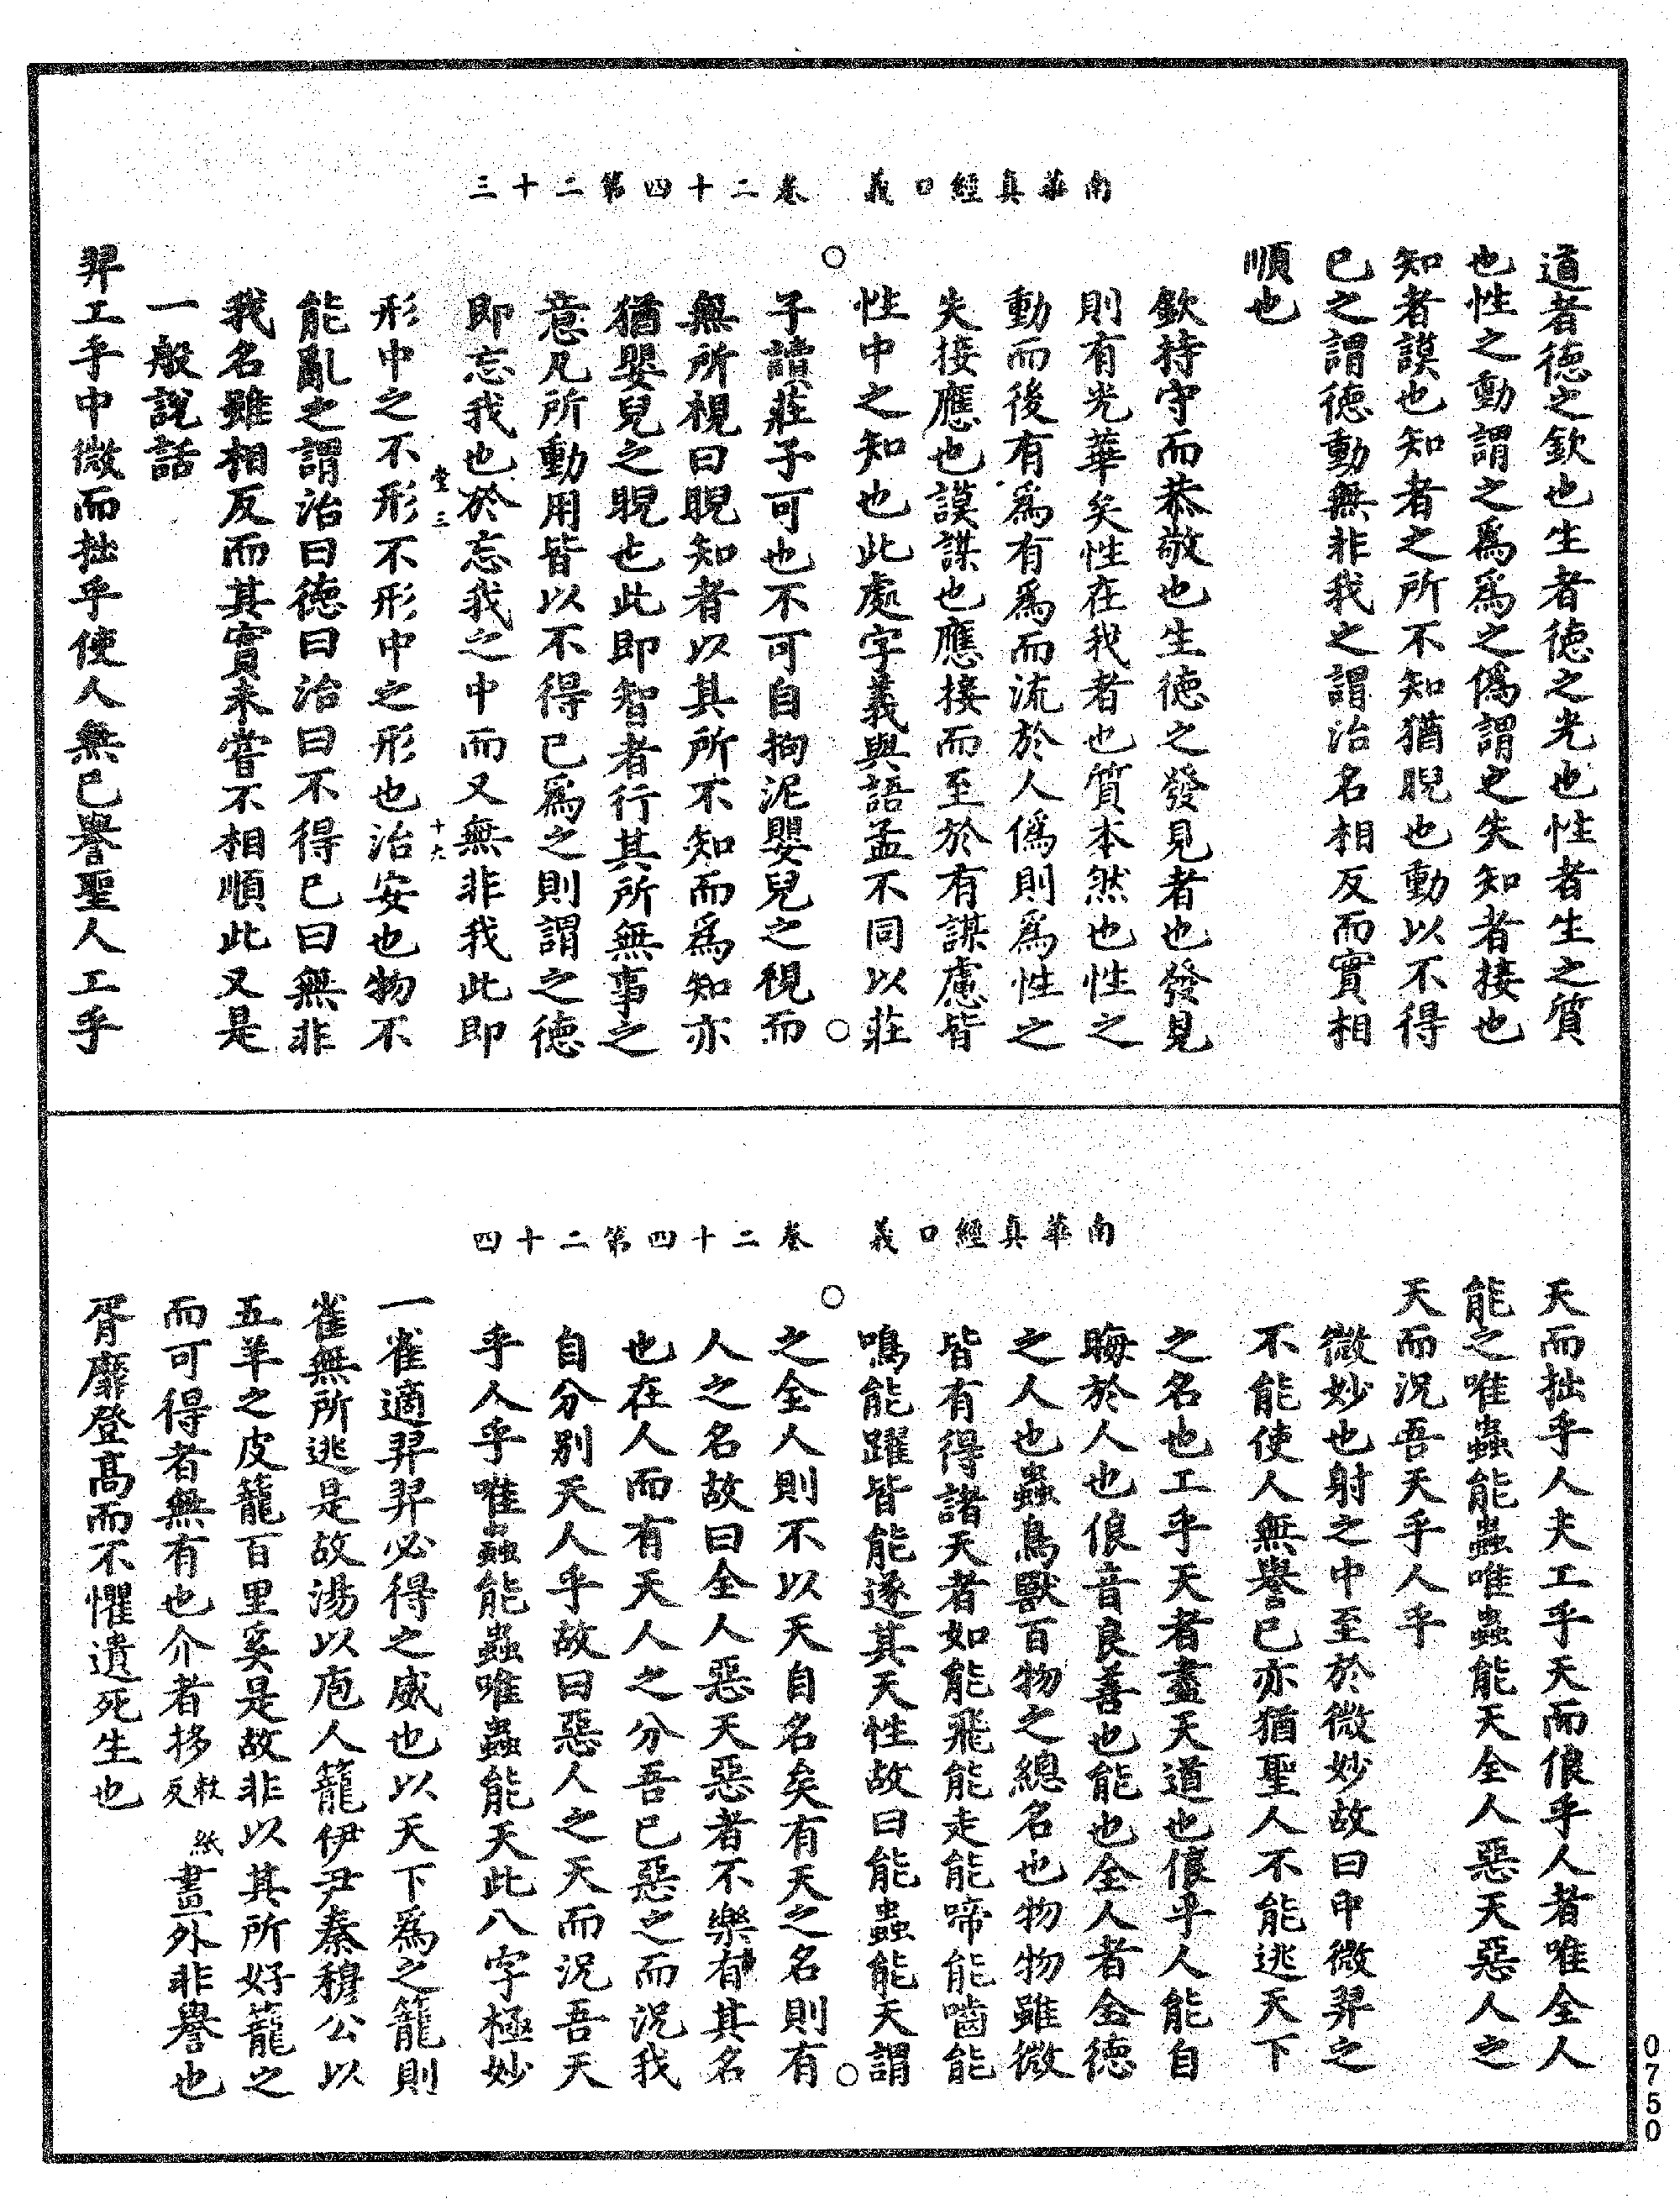 南華真經口義 卷二十四第二十三
道者德之欽也生者德之光也性者生之質
也性之動謂之為為之偽謂之失知者接也
知者謨也知者之所不知猶睨也動以不得
已之謂德動無非我之謂治名相反而實相
順也
欽持守而恭敬也生德之發見者也發見
則有光華矣性在我者也質本然也性之
動而後有為有為而流於人偽則為性之
失接應也謨謀也應接而至於有謀慮皆
性中之知也此處字義與語孟不同以莊
子讀莊子可也不可自拘泥嬰兒之視而
無所視曰睨知者以其所不知而為知亦
猶嬰兒之睨也此即智者行其所無事之
意凡所動用皆以不得已為之則謂之德
即忘我也於忘我之中而又無非我此即
堂三 十六
形中之不形不形中之形也治安也物不
能亂之謂治曰德曰治曰不得已曰無非
我名雖相反而其實未嘗不相順此又是
一般說話
羿工乎中微而拙乎使人無已譽聖人工乎
南華真經口義 卷二十四第二十四
天而拙乎人夫工乎天而俍乎人者唯全人
能之唯蟲能蟲唯蟲能天全人惡天惡人之
天而況吾天乎人乎
微妙也射之中至於微妙故曰中微羿之
不能使人無譽已亦猶聖人不能逃天下
之名也工乎天者盡天道也俍乎人能自
晦於人也俍音良善也能也全人者全德
之人也蟲鳥獸百物之總名也物物雖微
皆有得諸天者如能飛能走能啼能嚙能
鳴能躍皆能遂其天性故曰能蟲能天謂
之全人則不以天自名矣有天之名則有
人之名故曰全人惡天惡者不樂有其名
也在人而有天人之分吾已惡之而況我
自分別天人乎故曰惡人之天而況吾天
乎人乎唯蟲能蟲唯蟲能天此八字極妙
一雀適羿羿必得之威也以天下為之籠則
雀無所逃是故湯以庖人籠伊尹秦穆公以
五羊之皮籠百里奚是故非以其所好籠之
而可得者無有也介者拸敕紙反畫外非譽也
胥靡登高而不懼遺死生也
0750